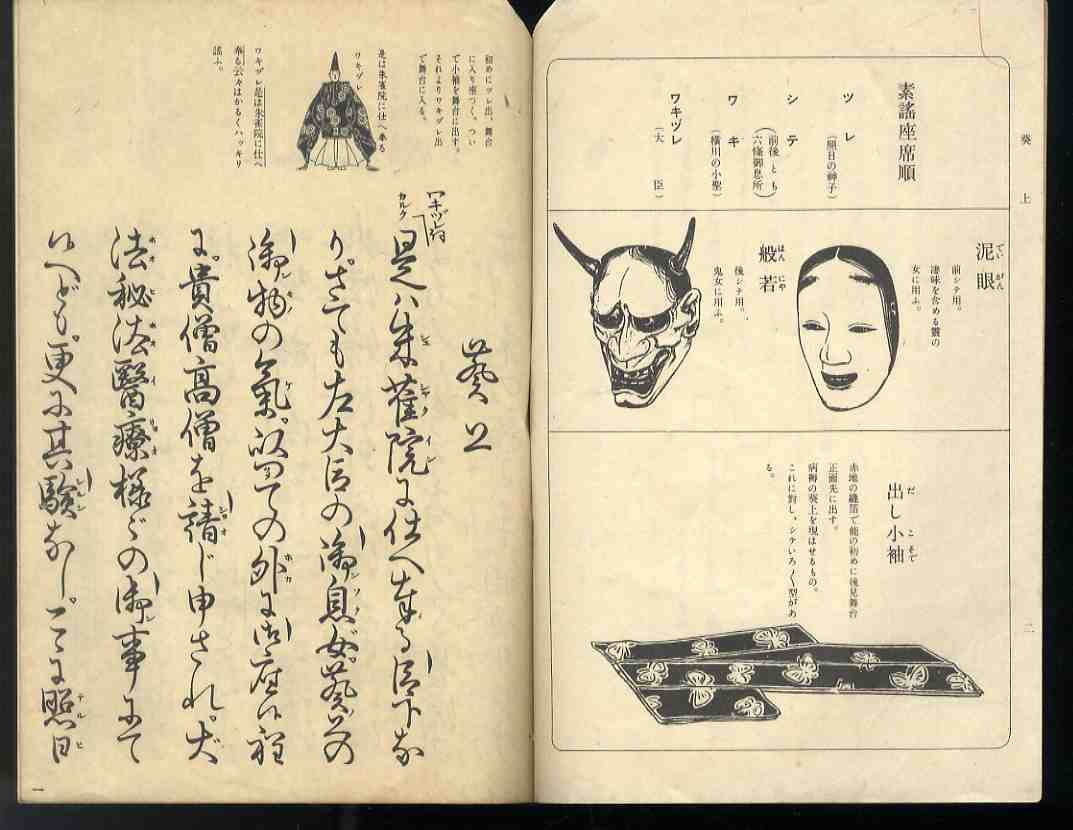 葵上
二
素謡座席順
ツレ
(照日の神子)
シテ
(前後とも)
(六條御息所)
ワキ
(横川の小聖)
ワキヅレ
(大臣)
泥眼
でいがん
前シテ用。
凄味を含める髒の
女に用ふ。
般若
はんにや
後シテ用。
鬼女に用ふ。
出し小袖
だこそで
赤地の縫箔で能の初めに後見舞台
正面先に出す。
病褥の葵上を現はせるもの。
これに對し、シテいろ〱型があ
る。
初めにツレ出、舞台
に入り座つく。つい
で小袖を舞台に出す。
それよりワキヅレ出
て舞台に入る。
是は朱雀院に仕へ奉る
ワキヅレ
ワキヅレ是は朱雀院に仕へ
奉る云々はかるくハッキリ
謡ふ。
葵上
ワキヅレ詞
カルク
是ハ朱雀院に仕へ奉る臣下な
り。さても左大臣の御息女。葵上の
御物の氣。以ての外に御座候程
に。貴僧高僧を請じ申され。大
法秘法醫療様々の御事にて
候へども。更に其験なし。ここに照日
一